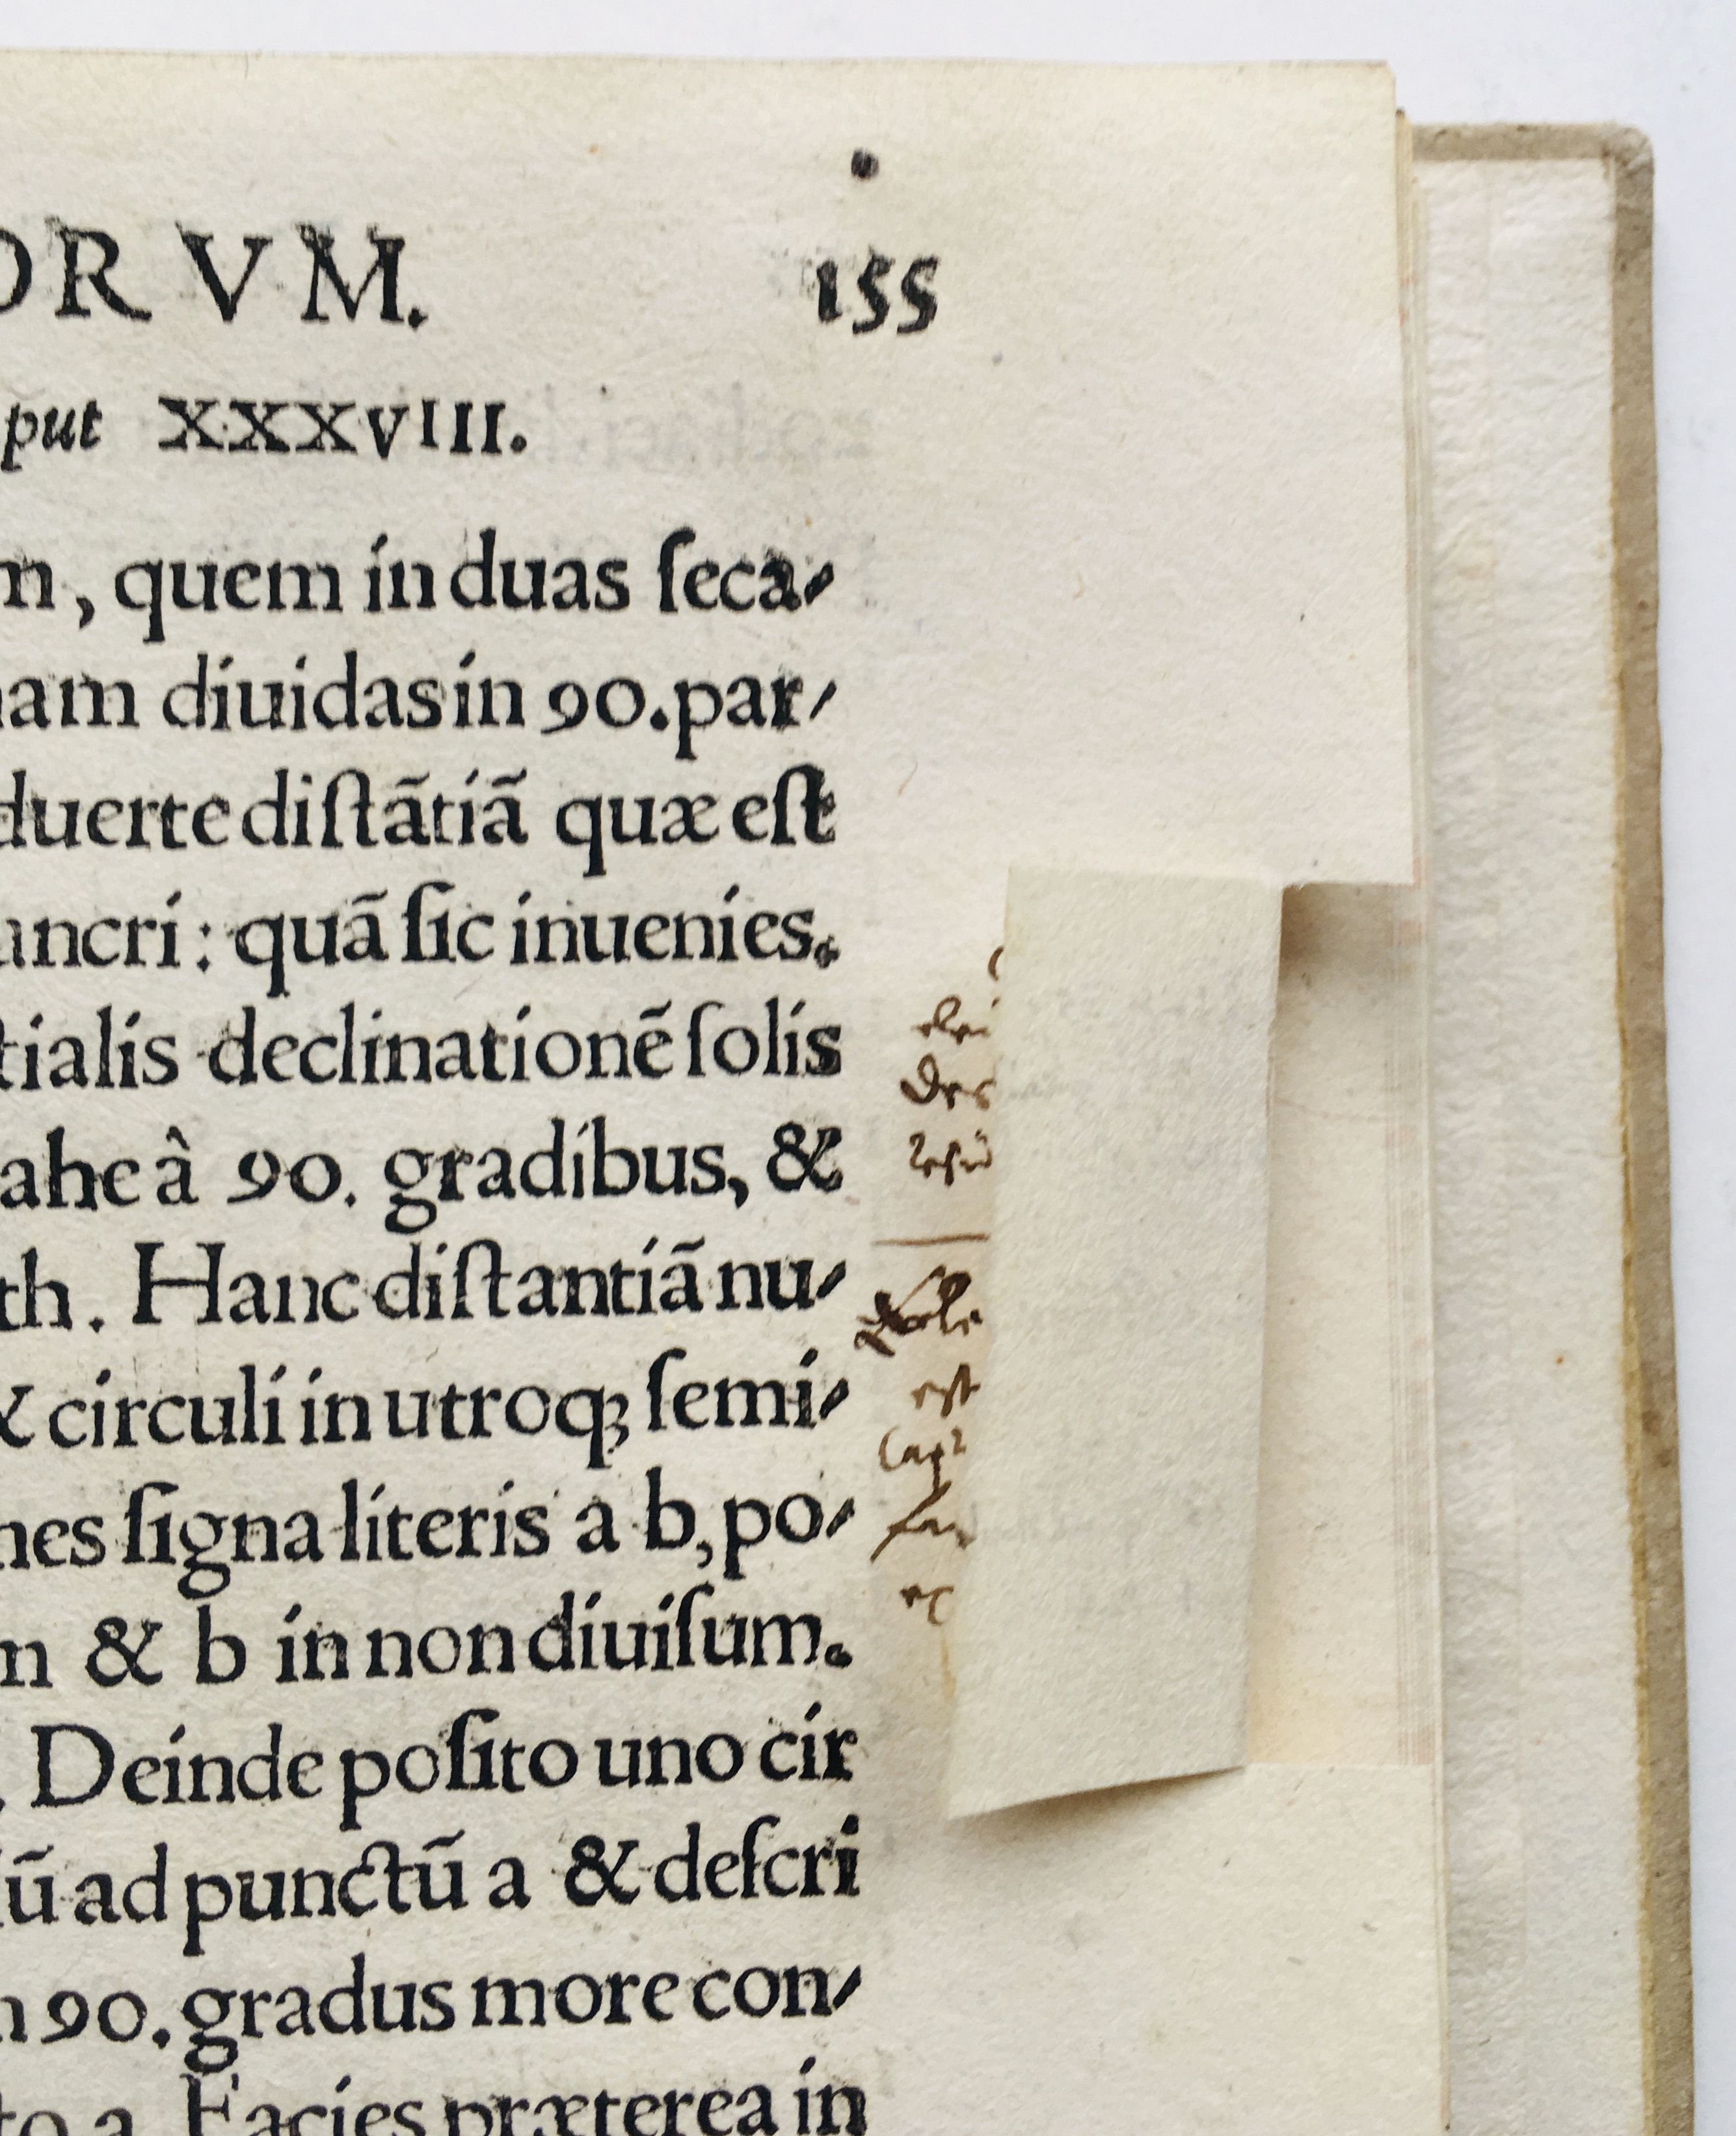 ORVM. 155
put XXXVIII.
n, quem in duas ſeca-
nam diuidas in 90. par-
duerte diſtãtiã quæ eſt
ancri: quã ſic inuenies.
tialis declinationẽ ſolis
ahe â 90. gradibus, &
th. Hanc diſtantiã nu-
& circuli in utroqꝫ ſemi-
nes ſigna literis a b, po-
m & b in non diuiſum.
. Deinde poſito uno cir
ũ ad punctũ a & deſcri
n 90. gradus more con-
to a. Facies præterea in
est